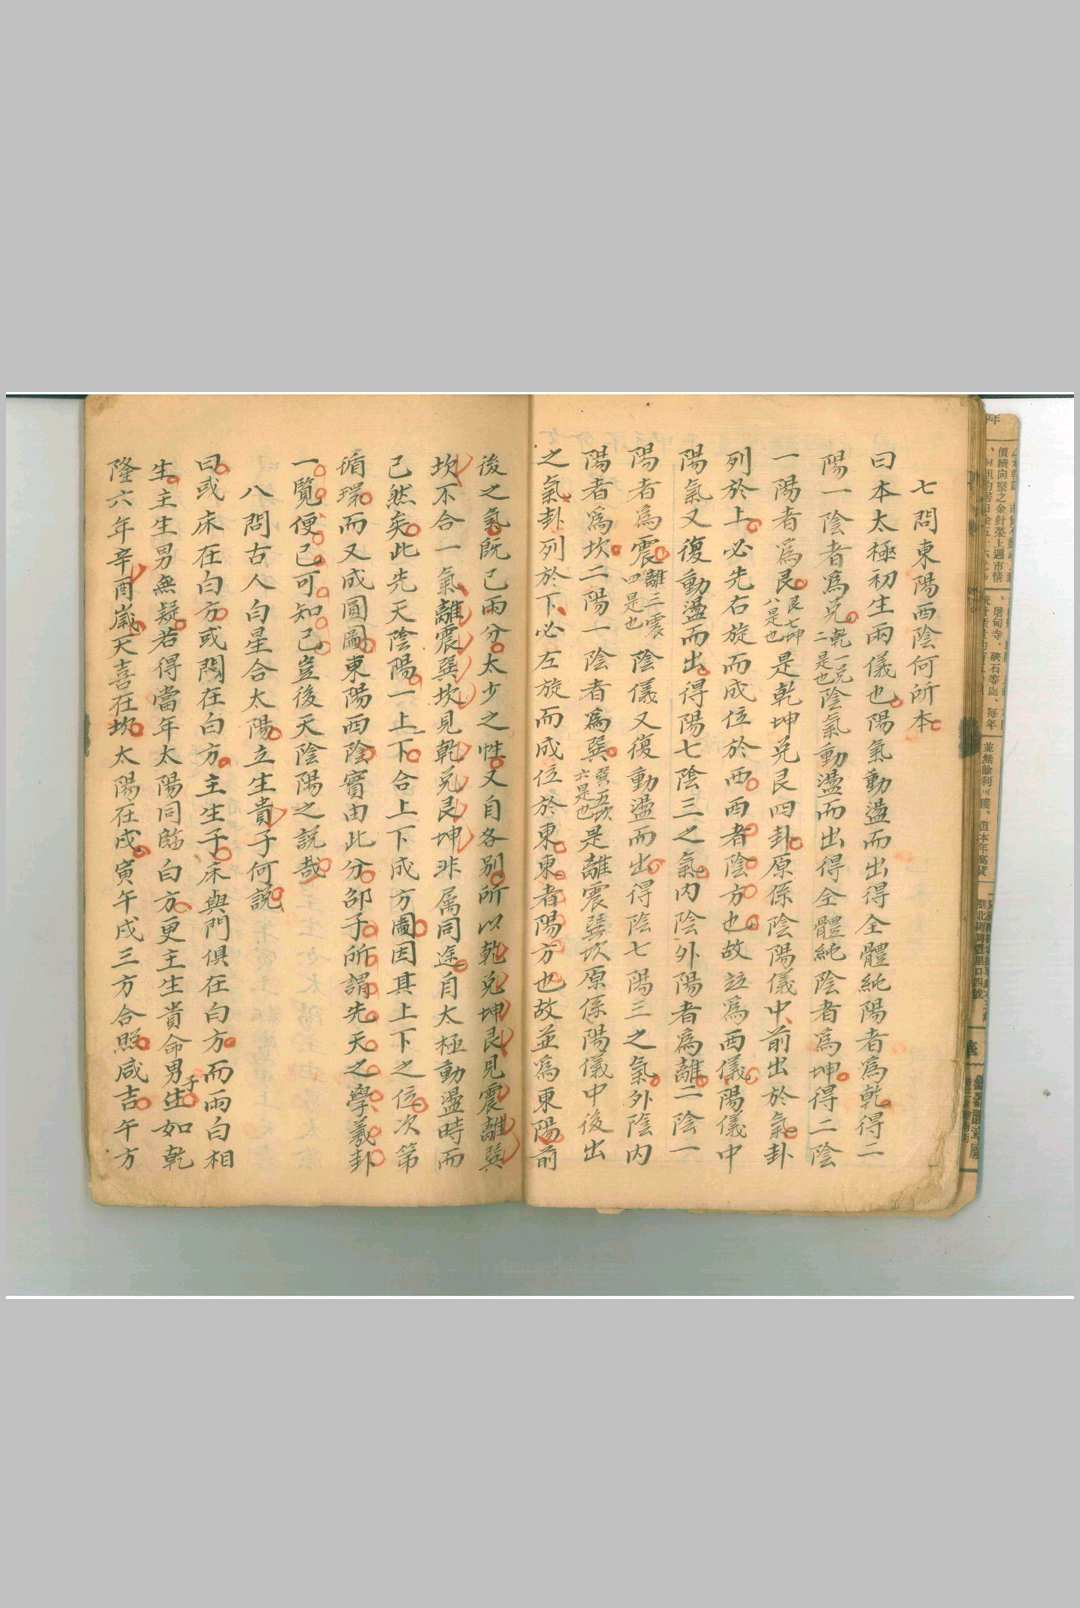 七問東陽西陰何所本
曰本太極初生兩儀也陽氣動盪而出得全體純陽者爲乾得二
陽一陰者爲兌乾一兌二是也陰氣動盪而出得全體純陰者爲坤得二陰
一陽者爲艮艮七坤八是也是乾坤兌艮四卦原係陰陽儀中前出於氣卦
列於上必先右旋而成位於西西者陰方也故竝爲西儀陽儀中
陽氣又復動盪而出得陽七陰三之氣內陰外陽者爲離二陰一
陽者爲震離三震四是也陰儀又復動盪而出得陰七陽三之氣外陰內
陽者爲坎二陽一陰者爲巽巽五坎六是也是離震巽坎原係陽儀中後出
之氣卦列於下必左旋而成位於東東者陽方也故並爲東陽前
後之氣旣已兩分太少之性又自各別所以乾兌坤艮見震離巽
坎不合一氣離震巽坎見乾兌艮坤非属同途自太極動盪時而
已然矣此先天陰陽一上一下合上下成方圖因其上下之位次第
循環而又成圓圖東陽西陰實由此分邵子所謂先天之學羲卦
一覽便已可知已豈後天陰陽之說哉
八問古人白星合太陽立生貴子何說
曰或床在白方或門在白方主生子床與門俱在白方而兩白相
生主生男無疑若得當年太陽同臨白方更主生貴命男子生如乾
隆六年辛酉歲天喜在坎太陽在戌寅午戌三方合照咸吉午方